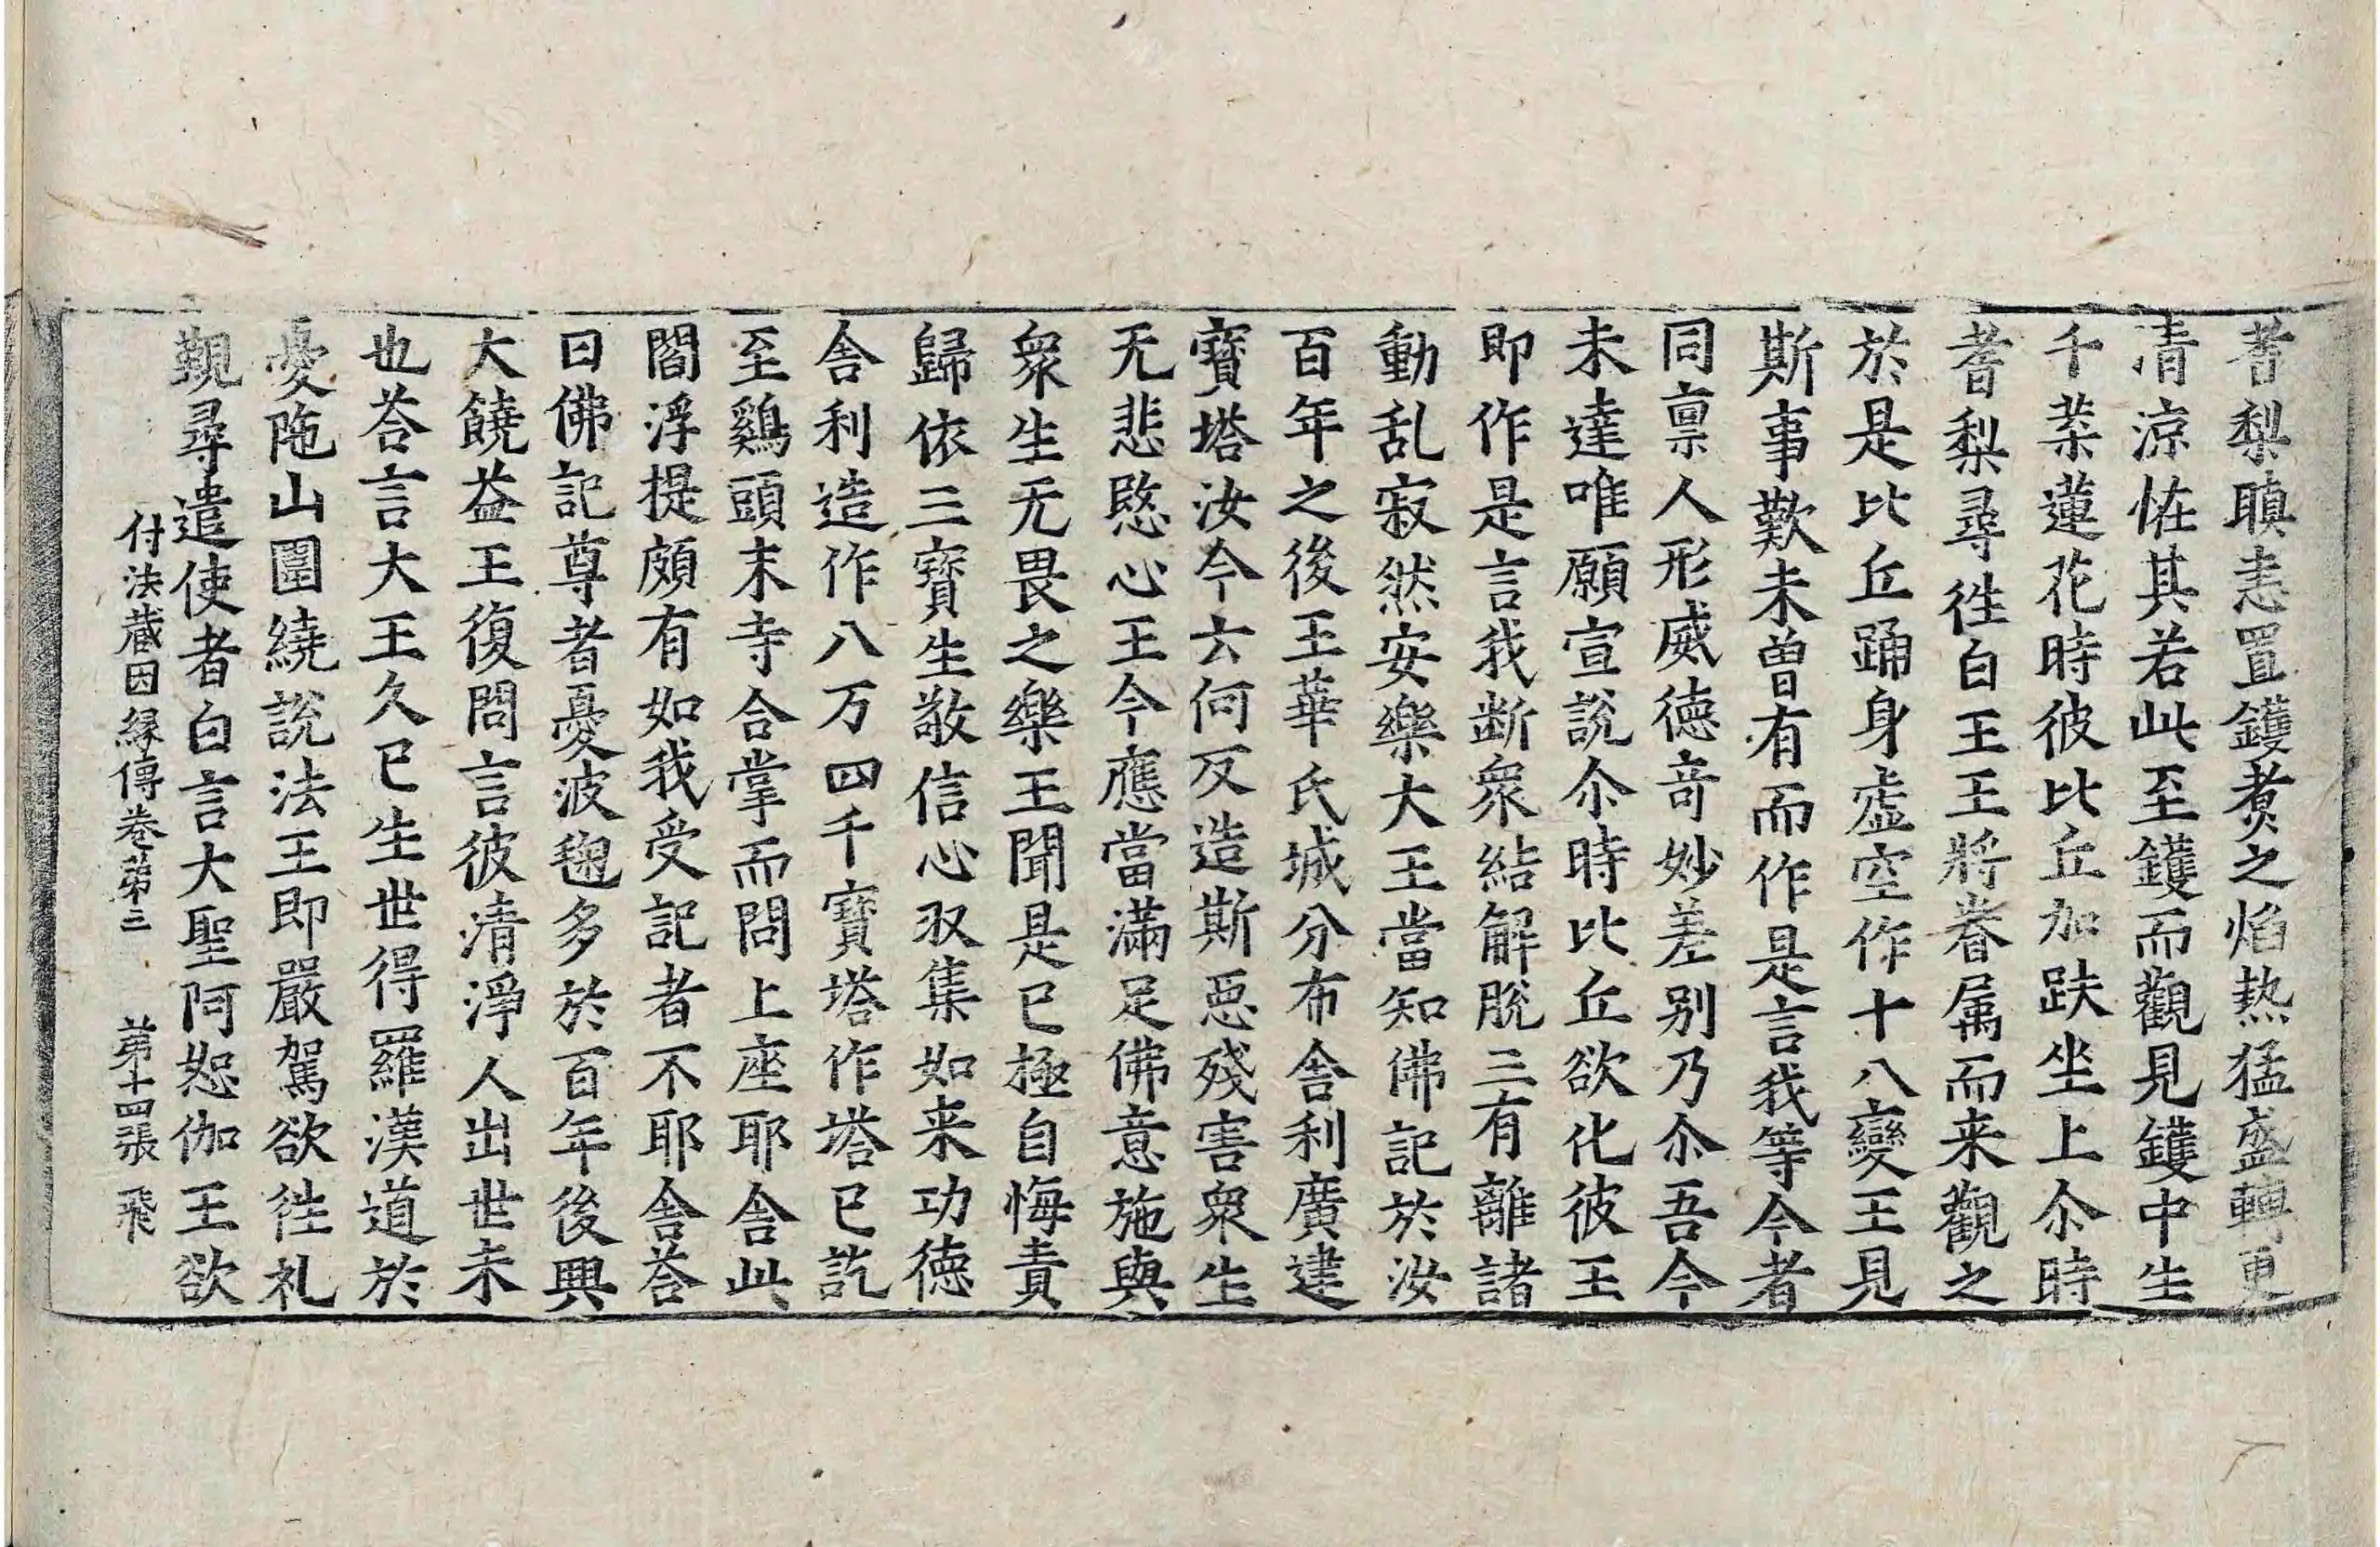 耆梨瞋恚置鑊煑之焰熱猛盛轉更
清涼恠其若此至鑊而觀見鑊中生
千葉蓮花時彼比丘加趺坐上尒時
耆梨尋徃白王王將眷属而来觀之
於是比丘踊身虚空作十八變王見
斯事歎未曽有而作是言我等今者
同禀人形威徳竒妙差别乃尒吾今
未達唯願宣說尒時比丘欲化彼王
即作是言我断衆結解脫三有離諸
動乱寂然安樂大王當知佛記於汝
百年之後王華氏城分布舎利廣建
寶塔汝今云何反造斯惡殘害衆生
无悲愍心王今應當滿足佛意施與
衆生无畏之樂王聞是已極自悔責
歸依三寳生敬信心収集如来功徳
舎利造作八万四千寶塔作塔已訖
至鷄頭末寺合掌而問上座耶舎此
閻浮提頗有如我受記者不耶舎荅
曰佛記尊者憂波毱多於百年後興
大饒益王復問言彼清淨人出世未
也荅言大王久已生世得羅漢道於
憂陁山圍繞說法王即嚴駕欲徃礼
覲尋遣使者白言大聖阿恕伽王欲
付法藏因縁傳卷第三 第十四張 飛